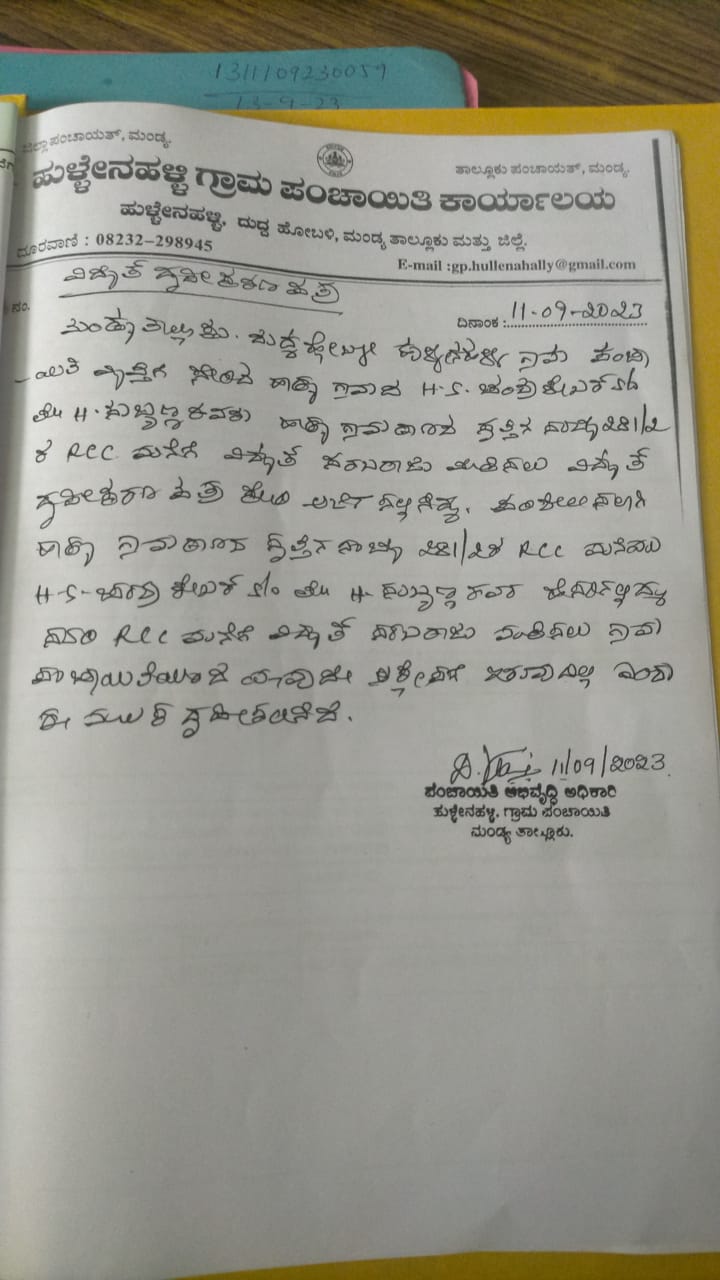 1311109230059
13-9-23
ಜಿಲ್ಲಾ ಪಂಚಾಯತ್, ಮಂಡ್ಯ.
ತಾಲ್ಲೂಕು ಪಂಚಾಯತ್, ಮಂಡ್ಯ.
ಹುಳ್ಳೇನಹಳ್ಳಿ ಗ್ರಾಮ ಪಂಚಾಯಿತಿ ಕಾರ್ಯಾಲಯ
ಹುಳ್ಳೇನಹಳ್ಳಿ, ದುದ್ದ ಹೋಬಳಿ, ಮಂಡ್ಯ ತಾಲ್ಲೂಕು ಮತ್ತು ಜಿಲ್ಲೆ.
ದೂರವಾಣಿ : 08232-298945
E-mail :gp.hullenahally@gmail.com
ವಿದ್ಯುತ್ ದೃಢೀಕರಣ ಪತ್ರ
ನಂ.
ದಿನಾಂಕ : 11-09-2023
ಮಂಡ್ಯ ತಾಲ್ಲೂಕು. ದುದ್ದ ಹೋಬಳಿ ಹುಳ್ಳೇನಹಳ್ಳಿ ಗ್ರಾಮ ಪಂಚಾ
-ಯಿತಿ ವ್ಯಾಪ್ತಿಗೆ ಸೇರಿದ ಗ್ರಾಮದ H.S. ಚಂದ್ರಶೇಖರ್ S/o
ಲೇಟ್ H. ಸುಬ್ಬಣ್ಣ ರವರು ಗ್ರಾಮಠಾಣಾ ಸ್ವತ್ತಿನ ಸಂಖ್ಯೆ 281/2
ರ RCC ಮನೆಗೆ ವಿದ್ಯುತ್ ಸರಬರಾಜು ಪಡೆಯಲು ವಿದ್ಯುತ್
ದೃಢೀಕರಣ ಪತ್ರ ಕೋರಿ ಅರ್ಜಿ ಸಲ್ಲಿಸಿದ್ದು. ಪರಿಶೀಲಿಸಲಾಗಿ
ಗ್ರಾಮಠಾಣಾ ಸ್ವತ್ತಿನ ಸಂಖ್ಯೆ 281/2ರ RCC ಮನೆಯು
H.S. ಚಂದ್ರಶೇಖರ್ S/o ಲೇಟ್ H. ಸುಬ್ಬಣ್ಣ ರವರ ಹೆಸರಿನಲ್ಲಿದ್ದು
ಸದರಿ RCC ಮನೆಗೆ ವಿದ್ಯುತ್ ಸರಬರಾಜು ಪಡೆಯಲು ಗ್ರಾಮ
ಪಂಚಾಯಿತಿಯಿಂದ ಯಾವುದೇ ಆಕ್ಷೇಪಣೆ ಇರುವುದಿಲ್ಲ ಎಂದು
ಈ ಮೂಲಕ ದೃಢೀಕರಿಸಿದೆ.
11/09/2023
ಪಂಚಾಯಿತಿ ಅಭಿವೃದ್ಧಿ ಅಧಿಕಾರಿ
ಹುಳ್ಳೇನಹಳ್ಳಿ, ಗ್ರಾಮ ಪಂಚಾಯಿತಿ
ಮಂಡ್ಯ ತಾಲ್ಲೂಕು.